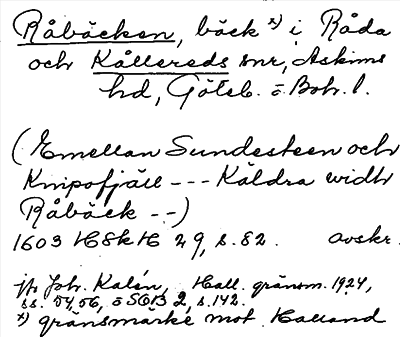 Råbäcken, bäck x) i Råda
och Kållereds snr, Askims
hd, Göteb. o. Boh. l.
(Emellan Sundesteen och
Knipofjäll --- Käldra widh
Råbäck --)
1603 HSkH 29, s. 82. avskr.
jfr Joh. Kalén, Hall. gränsm. 1924,
ss. 54, 56, o SGIB 2, s. 142.
x) gränsmärke mot Halland